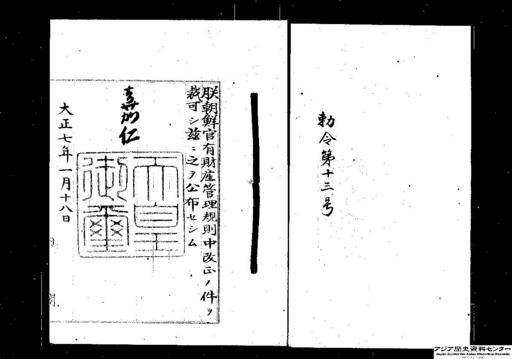 勅令第十三号
朕朝鮮官有財産管理規則中改正ノ件ヲ
裁可シ茲ニ之ヲ公布セシム
嘉仁
天皇御璽
大正七年一月十八日
アジア歴史資料センター
Japan Center for Asian Historical Records